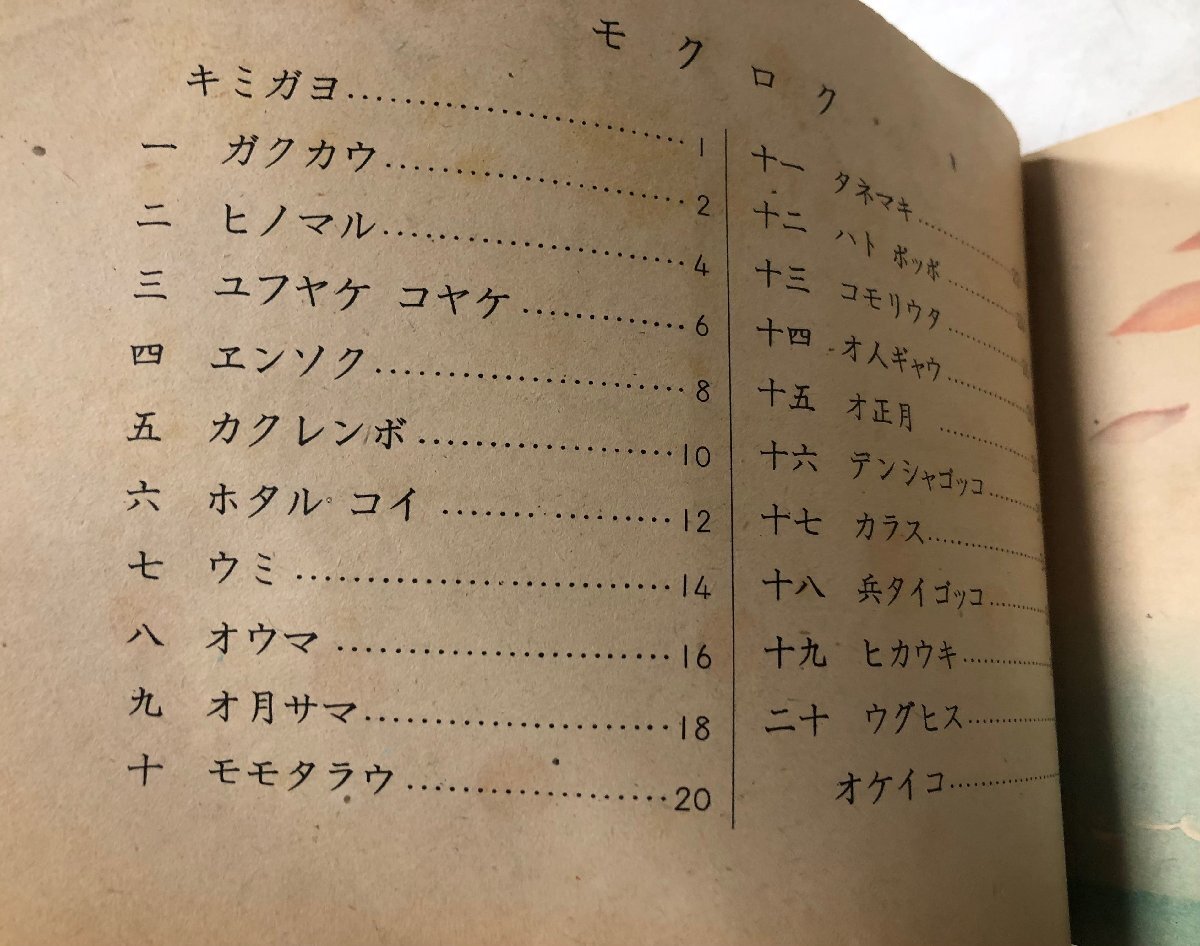 モクロク
キミガヨ………………1
一 ガクカウ………………2
二 ヒノマル………………4
三 ユフヤケ コヤケ…………6
四 ヱンソク………………8
五 カクレンボ……………10
六 ホタル コイ……………12
七 ウミ…………………14
八 オウマ………………16
九 オ月サマ……………18
十 モモタラウ……………20
十一 タネマキ…………
十二 ハト ポッポ…………
十三 コモリウタ…………
十四 オ人ギャウ…………
十五 オ正月…………
十六 デンシャゴッコ…………
十七 カラス…………
十八 兵タイゴッコ…………
十九 ヒカウキ…………
二十 ウグヒス…………
オケイコ…………